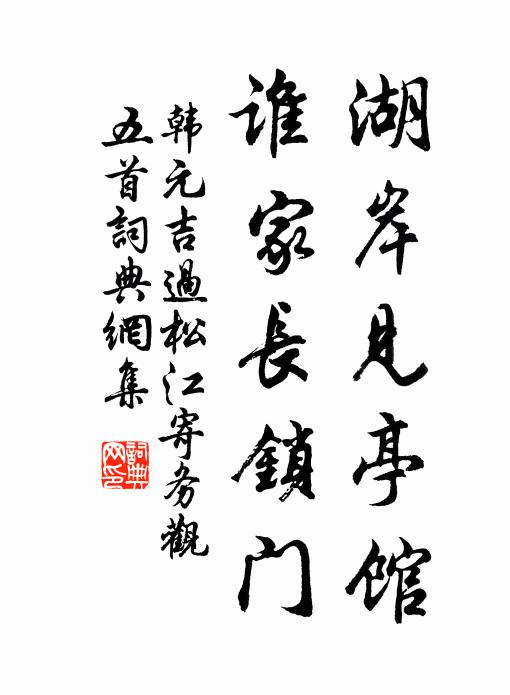 湖岸见亭馆
谁家長鎖门
韩元吉過松江寄务觀
五首詞典網集
詞典
网印